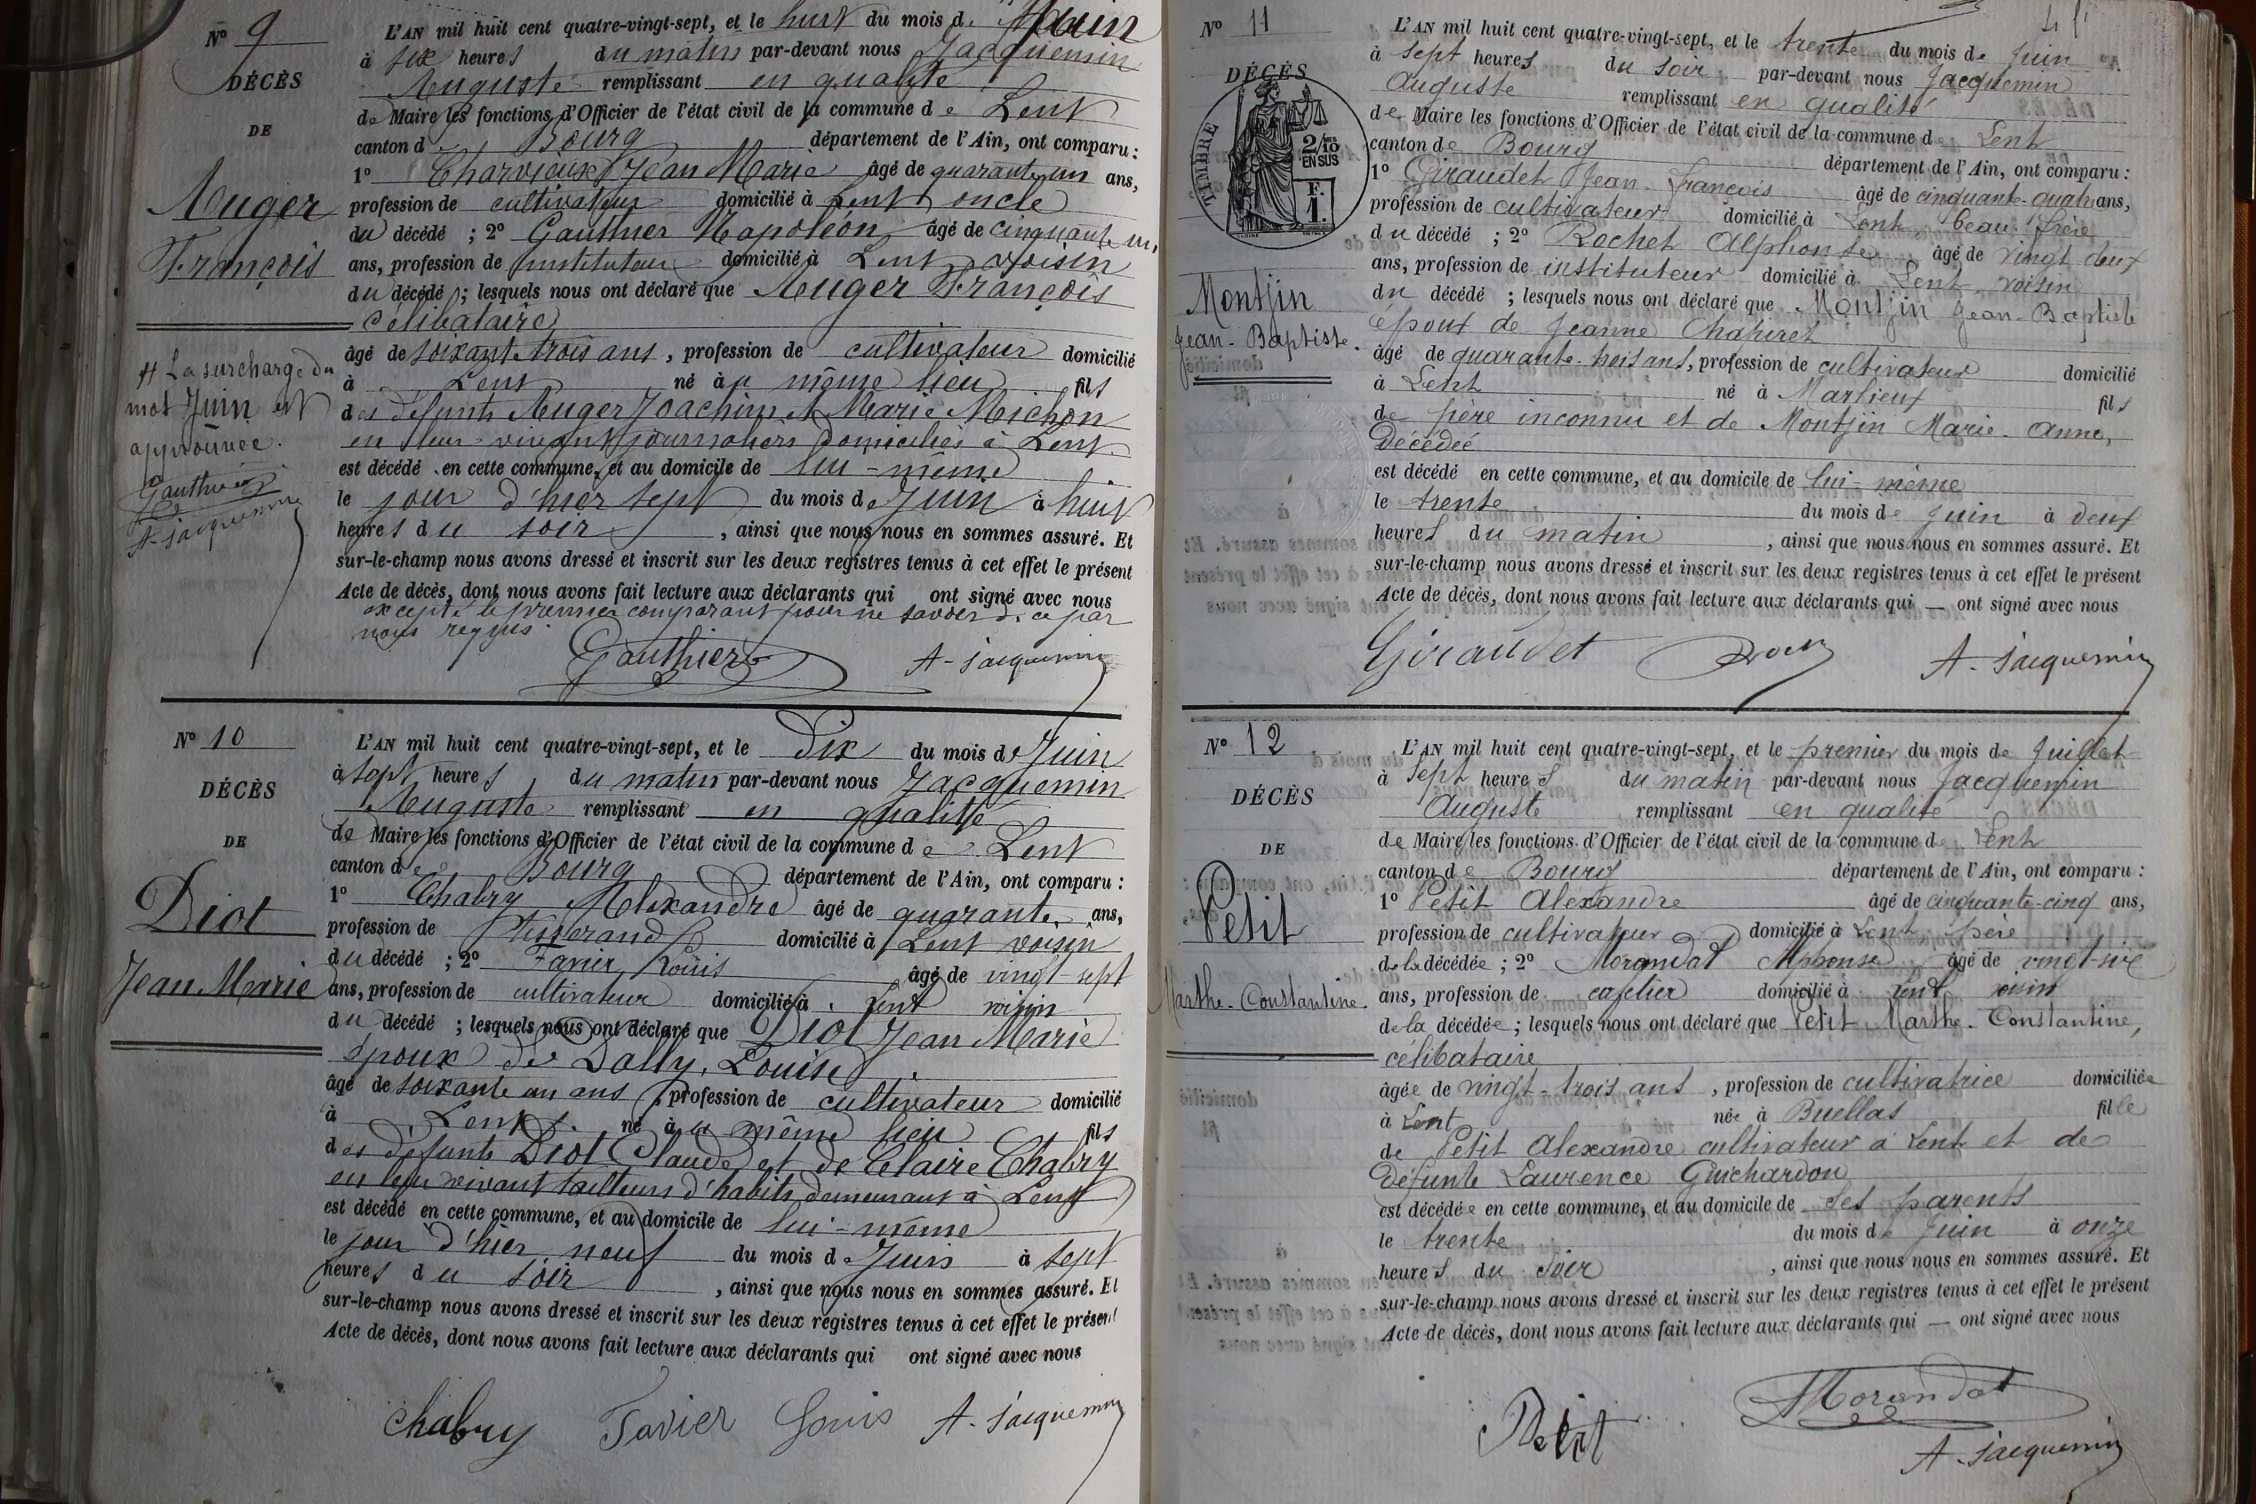 Nº 9
DÉCÈS
DE
Auger
François
H La surcharge du
mot Juin est
approuvée.
Gauthier
A. Jacquemin
L'AN mil huit cent quatre-vingt-sept, et le huit du mois de Juin
à six heures du matin par-devant nous Jacquemin
Auguste remplissant en qualité
de Maire les fonctions d'Officier de l'état civil de la commune de Lent
canton d Bourg département de l'Ain, ont comparu :
1º Charvieux Jean Marie âgé de quarante un ans,
profession de cultivateur domicilié à Lent oncle
du décédé ; 2º Gauthier Napoléon âgé de cinquante un
ans, profession de instituteur domicilié à Lent voisin
du décédé ; lesquels nous ont déclaré que Auger François
célibataire
âgé de soixante trois ans, profession de cultivateur domicilié
à Lent né au même lieu fils
des défunts Auger Joachim et Marie Michon
en leur vivant journaliers domiciliés à Lent
est décédé en cette commune, et au domicile de lui-même
le jour d'hier sept du mois de Juin à huit
heures du soir, ainsi que nous nous en sommes assuré. Et
sur-le-champ nous avons dressé et inscrit sur les deux registres tenus à cet effet le présent
Acte de décès, dont nous avons fait lecture aux déclarants qui ont signé avec nous
excepté le premier comparant pour ne savoir de ce par
nous requis.
Gauthier A. Jacquemin
Nº 10
DÉCÈS
DE
Diot
Jean Marie
L'AN mil huit cent quatre-vingt-sept, et le Dix du mois de Juin
à sept heures du matin par-devant nous Jacquemin
Auguste remplissant en qualité
de Maire les fonctions d'Officier de l'état civil de la commune de Lent
canton de Bourg département de l'Ain, ont comparu :
1º Chabry Alexandre âgé de quarante ans,
profession de Tisserand domicilié à Lent voisin
du décédé ; 2º Favier Louis âgé de vingt-sept
ans, profession de cultivateur domicilié à Lent voisin
du décédé ; lesquels nous ont déclaré que Diot Jean Marie
époux de Dally, Louise
âgé de soixante un ans, profession de cultivateur domicilié
à Lent né au même lieu fils
des défunts Diot Claude et de Claire Chabry
en leur vivant tailleurs d'habits demeurant à Lent
est décédé en cette commune, et au domicile de lui-même
le jour d'hier neuf du mois de Juin à sept
heures du soir, ainsi que nous nous en sommes assuré. Et
sur-le-champ nous avons dressé et inscrit sur les deux registres tenus à cet effet le présent
Acte de décès, dont nous avons fait lecture aux déclarants qui ont signé avec nous
Chabry Favier Louis A. Jacquemin
Nº 11
DÉCÈS
TIMBRE
2/10 EN SUS
F. 1.
Montjin
Jean-Baptiste.
L'AN mil huit cent quatre-vingt-sept, et le trente du mois de Juin
à sept heures du soir par-devant nous Jacquemin
Auguste remplissant en qualité
de Maire les fonctions d'Officier de l'état civil de la commune de Lent
canton de Bourg département de l'Ain, ont comparu :
1º Giraudet Jean-François âgé de cinquante-quatre ans,
profession de cultivateur domicilié à Lent, beau-frère
du décédé ; 2º Rochet Alphonse âgé de vingt deux
ans, profession de instituteur domicilié à Lent voisin
du décédé ; lesquels nous ont déclaré que Montjin Jean-Baptiste
époux de Jeanne Chaperet
âgé de quarante-trois ans, profession de cultivateur domicilié
à Lent né à Marlieux fils
de père inconnu et de Montjin Marie-Anne,
Décédée
est décédé en cette commune, et au domicile de lui-même
le trente du mois de Juin à deux
heures du matin, ainsi que nous nous en sommes assuré. Et
sur-le-champ nous avons dressé et inscrit sur les deux registres tenus à cet effet le présent
Acte de décès, dont nous avons fait lecture aux déclarants qui — ont signé avec nous
Giraudet A. Jacquemin
Nº 12
DÉCÈS
DE
Petit
Marthe-Constantine.
L'AN mil huit cent quatre-vingt-sept, et le premier du mois de Juillet
à sept heures du matin par-devant nous Jacquemin
Auguste remplissant en qualité
de Maire les fonctions d'Officier de l'état civil de la commune de Lent
canton de Bourg département de l'Ain, ont comparu :
1º Petit Alexandre âgé de cinquante-cinq ans,
profession de cultivateur domicilié à Lent père
de la décédée ; 2º Morandat Alphonse âgé de vingt-six
ans, profession de cafetier domicilié à Lent voisin
de la décédée ; lesquels nous ont déclaré que Petit Marthe-Constantine,
célibataire
âgée de vingt-trois ans, profession de cultivatrice domiciliée
à Lent née à Buellas fille
de Petit Alexandre cultivateur à Lent et de
défunte Laurence Guichardon
est décédée en cette commune, et au domicile de ses parents
le trente du mois de Juin à onze
heures du soir, ainsi que nous nous en sommes assuré. Et
sur-le-champ nous avons dressé et inscrit sur les deux registres tenus à cet effet le présent
Acte de décès, dont nous avons fait lecture aux déclarants qui — ont signé avec nous
Petit Morandat
A. Jacquemin